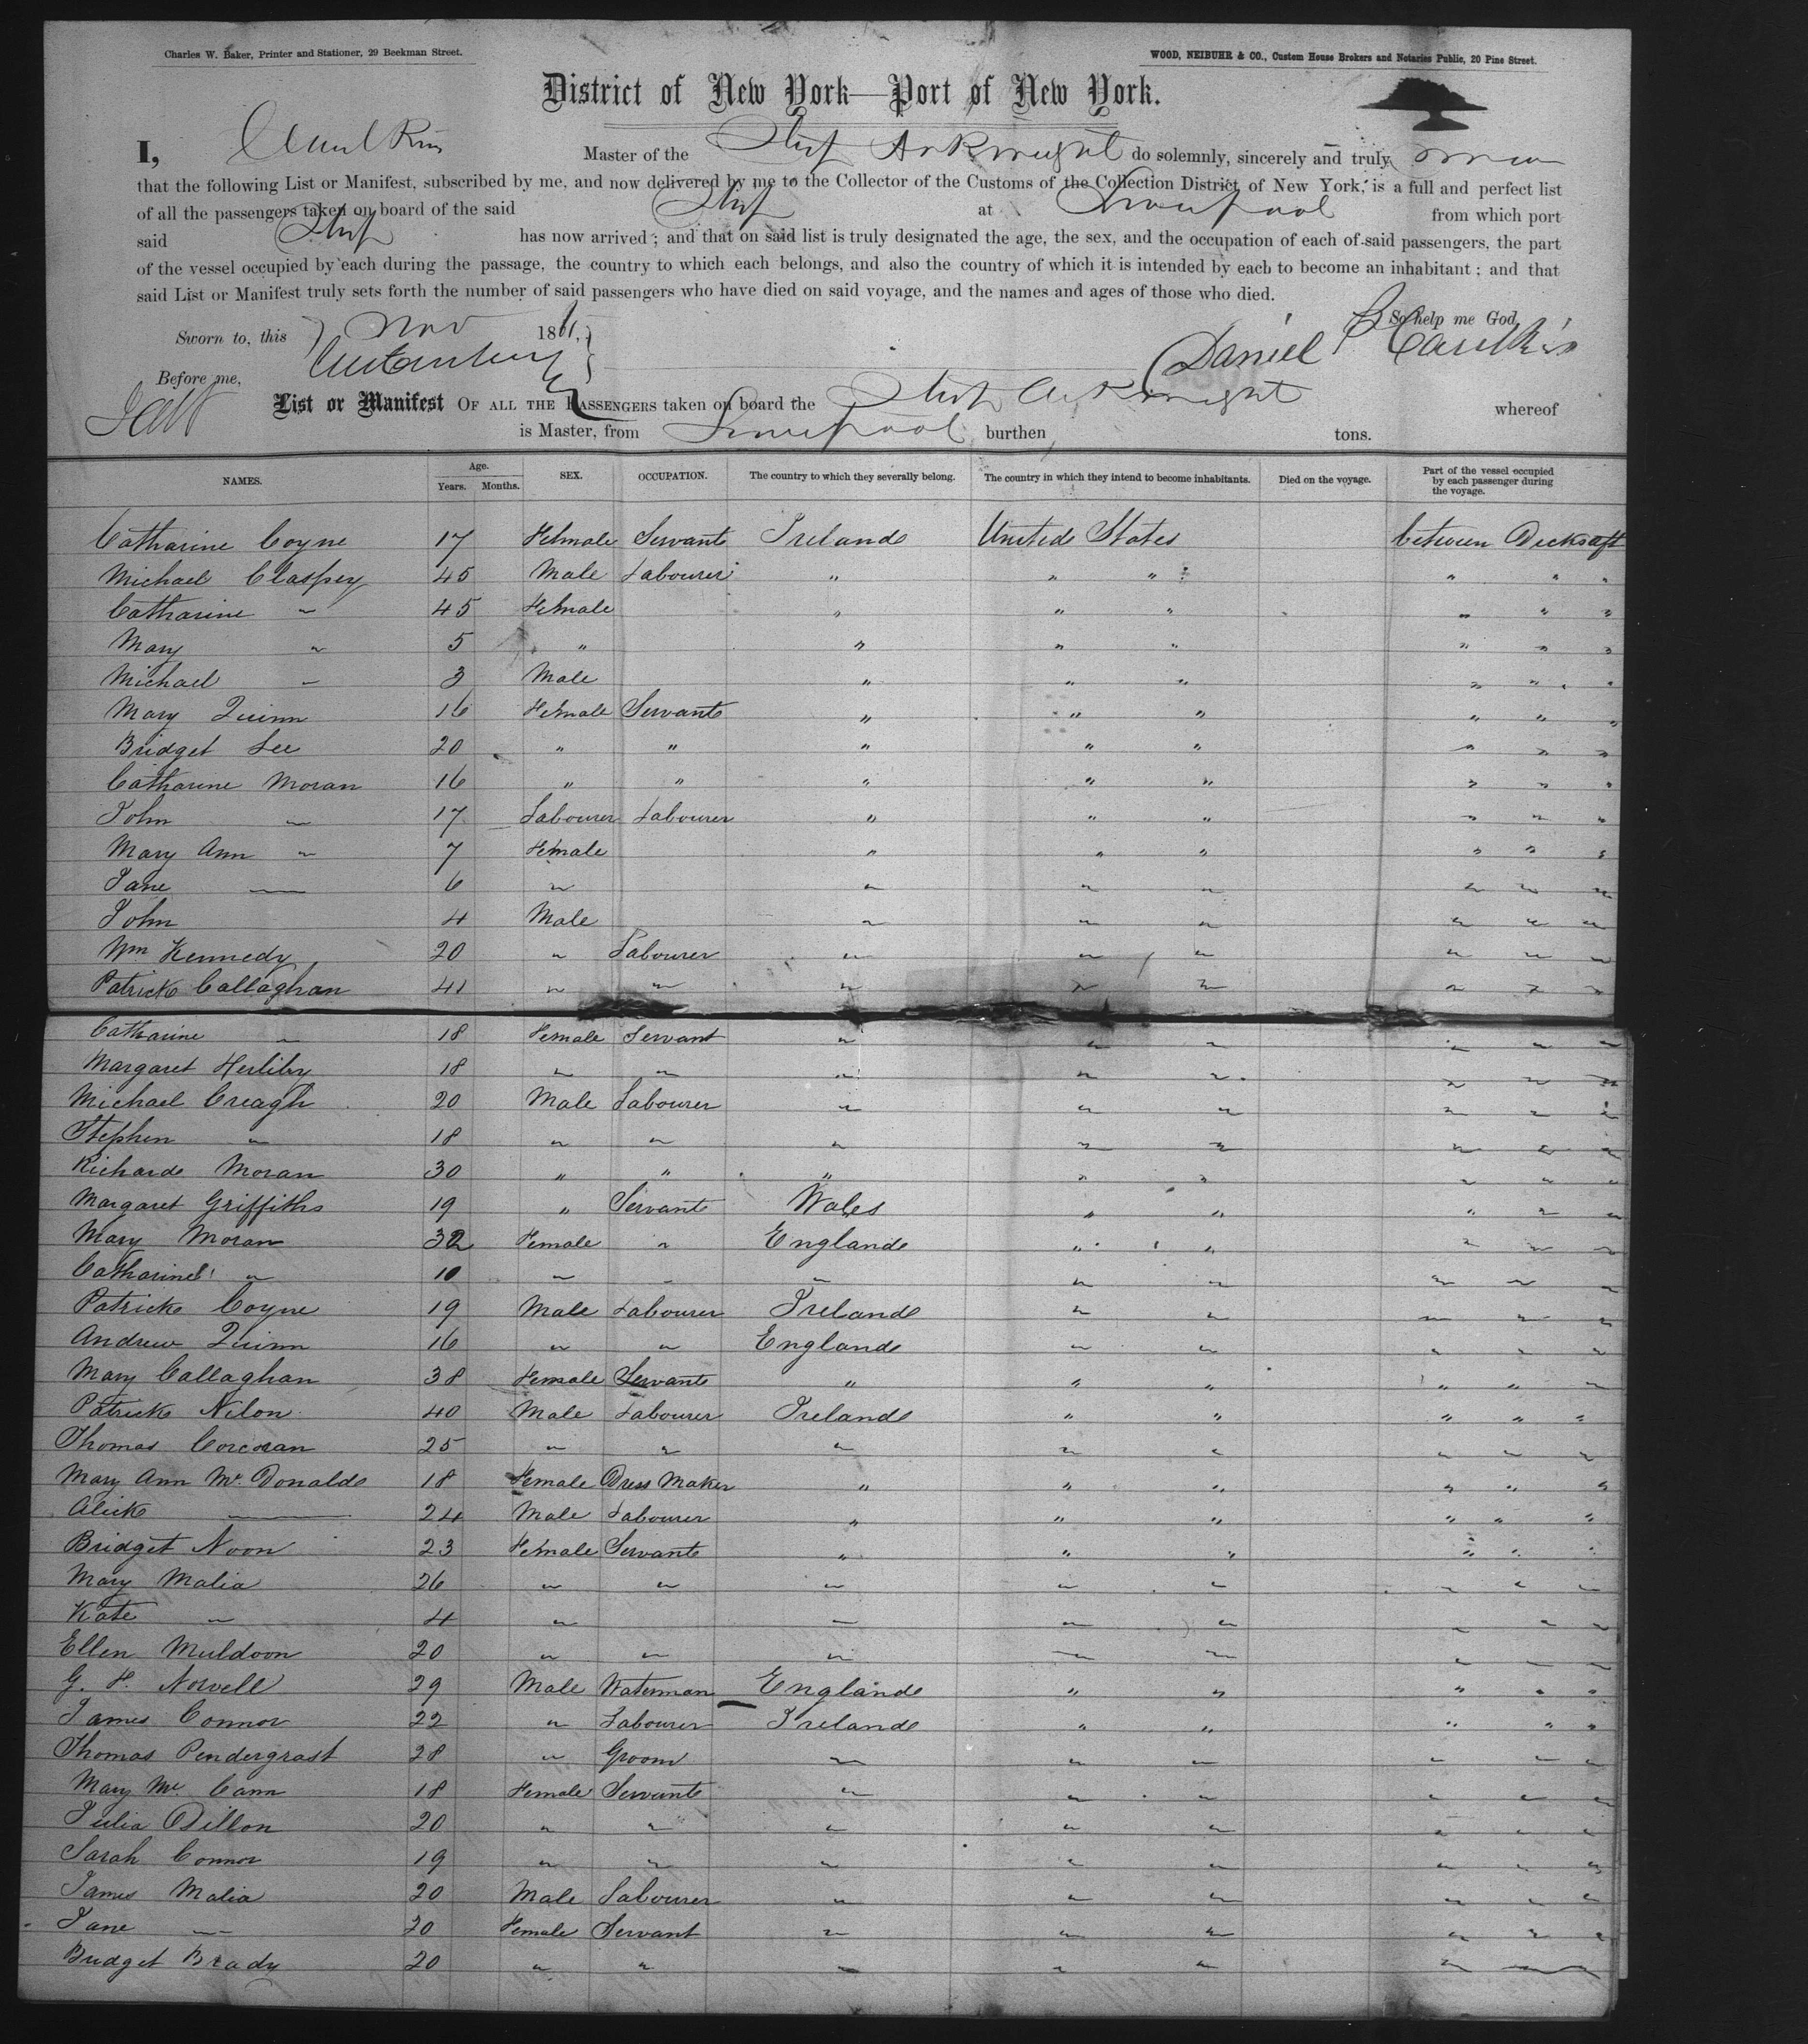 Charles W. Baker, Printer and Stationer, 29 Beekman Street.
WOOD, NEIBUHR & CO., Custom House Brokers and Notaries Public, 20 Pine Street.
District of New York—Port of New York.
I, Caulkins Master of the Ship Arkwright do solemnly, sincerely and truly
that the following List or Manifest, subscribed by me, and now delivered by me to the Collector of the Customs of the Collection District of New York, is a full and perfect list
of all the passengers taken on board of the said Ship at Liverpool from which port
said Ship has now arrived; and that on said list is truly designated the age, the sex, and the occupation of each of said passengers, the part
of the vessel occupied by each during the passage, the country to which each belongs, and also the country of which it is intended by each to become an inhabitant; and that
said List or Manifest truly sets forth the number of said passengers who have died on said voyage, and the names and ages of those who died.
So help me God,
Sworn to, this 7 Nov 186
Daniel P Caulkins
Before me,
List or Manifest OF ALL THE PASSENGERS taken on board the Ship Arkwright whereof
is Master, from Liverpool burthen tons.
NAMES. Age. Years. Months. SEX. OCCUPATION. The country to which they severally belong. The country in which they intend to become inhabitants. Died on the voyage. Part of the vessel occupied by each passenger during the voyage.
Catharine Coyne 17 Female Servant Ireland United States between Decks aft
Michael Claspey 45 Male Labourer " " " " " "
Catharine " 45 Female " " " " " "
Mary " 5 " " " " " " "
Michael " 3 Male " " " " " "
Mary Quinn 16 Female Servant " " " " " "
Bridget Lee 20 " " " " " " " "
Catharine Moran 16 " " " " " " " "
John " 17 Labourer Labourer " " " " " "
Mary Ann " 7 Female " " " " " "
Jane — 6 " " " " " " "
John 4 Male " " " " " "
Wm Kennedy 20 " Labourer " " " " " "
Patrick Callaghan 41 " " " " " " " "
Catharine " 18 Female Servant " " " " " "
Margaret Herlihy 18 " " " " " " " "
Michael Creagh 20 Male Labourer " " " " " "
Stephen " 18 " " " " " " " "
Richard Moran 30 " " " " " " " "
Margaret Griffiths 19 " Servant Wales " " " " "
Mary Moran 32 Female " England " " " " "
Catharine " 10 " " " " " " " "
Patrick Coyne 19 Male Labourer Ireland " " " " "
Andrew Quinn 16 " " England " " " " "
Mary Callaghan 38 Female Servant " " " " " "
Patrick Nilon 40 Male Labourer Ireland " " " " "
Thomas Corcoran 25 " " " " " " " "
Mary Ann McDonald 18 Female Dress Maker " " " " " "
Alick — 24 Male Labourer " " " " " "
Bridget Noon 23 Female Servant " " " " " "
Mary Malia 26 " " " " " " " "
Kate " 4 " " " " " " "
Ellen Muldoon 20 " " " " " " " "
G. H. Norvell 29 Male Waterman England " " " " "
James Connor 22 " Labourer Ireland " " " " "
Thomas Pendergrast 28 " Groom " " " " " "
Mary McCann 18 Female Servant " " " " " "
Julia Dillon 20 " " " " " " " "
Sarah Connor 19 " " " " " " " "
James Malia 20 Male Labourer " " " " " "
Jane — 20 Female Servant " " " " " "
Bridget Brady 20 " " " " " " "